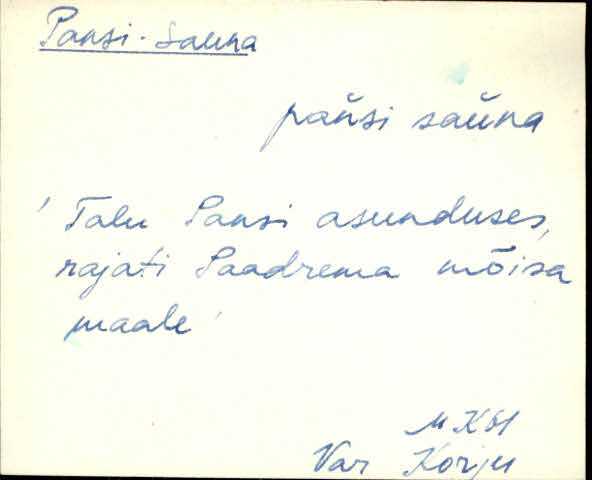 Pansi-Sauna
pań̆si sau̬na
' Talu Pansi asunduses,
rajati Saadrema mõisa
maale '
MKõl
Var Korju